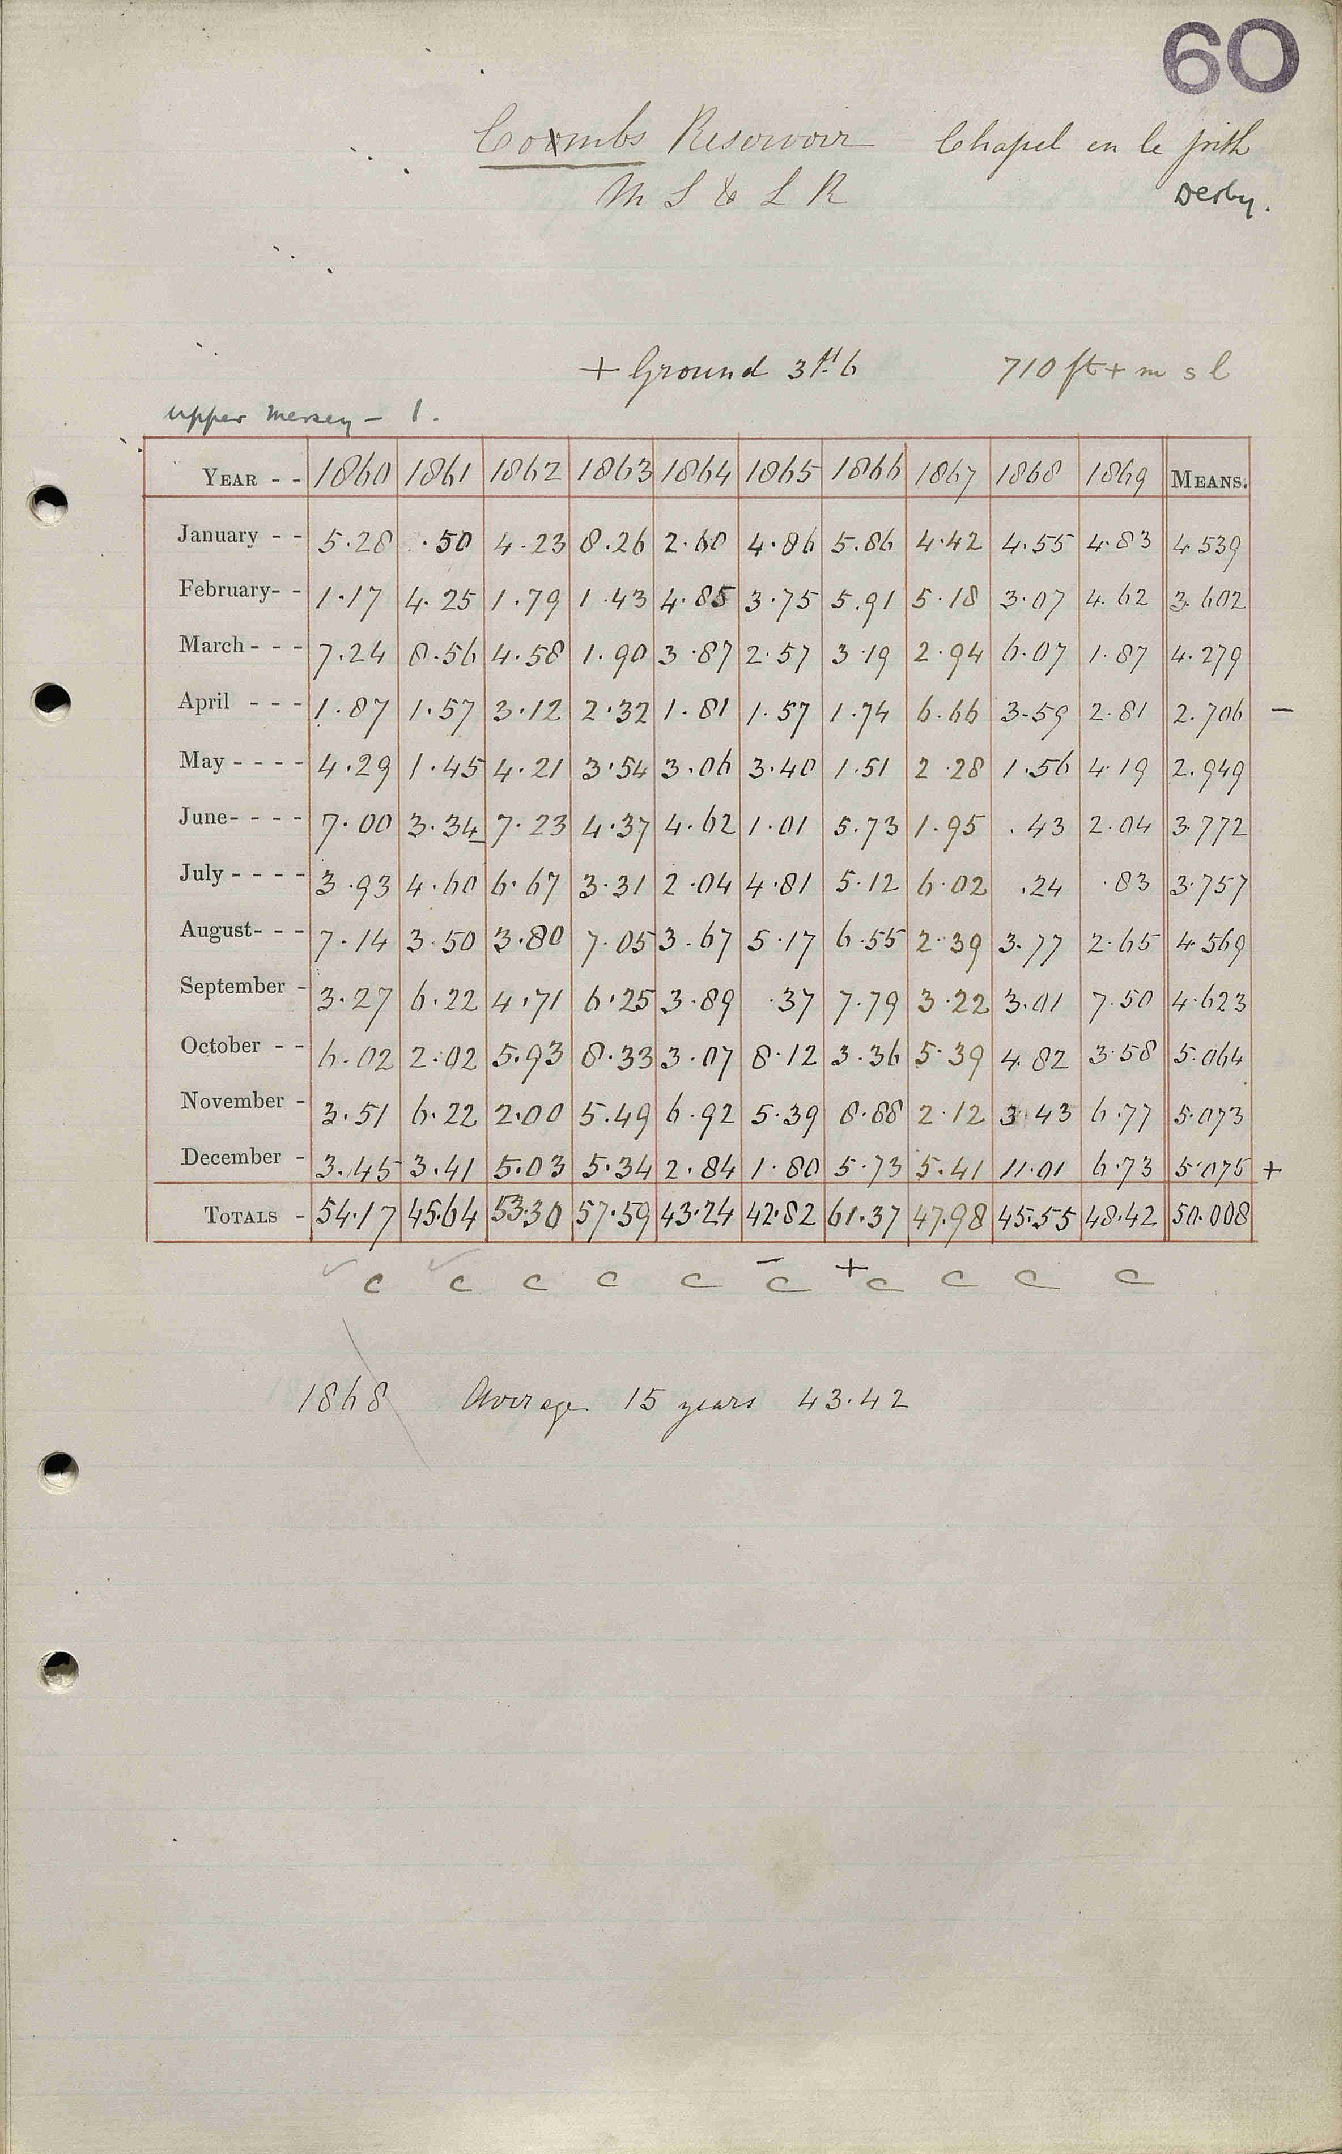 60
Coombs Resorvoir Chapel en le frith
M S & L R Derby.
+ Ground 3ft 6 710 ft + m s l
Upper Mersey - 1.
YEAR - - 1860 1861 1862 1863 1864 1865 1866 1867 1868 1869 MEANS.
January - - 5.28 .50 4.23 8.26 2.60 4.86 5.86 4.42 4.55 4.83 4.539
February- - 1.17 4.25 1.79 1.43 4.85 3.75 5.91 5.18 3.07 4.62 3.602
March - - - 7.24 8.56 4.58 1.90 3.87 2.57 3.19 2.94 6.07 1.87 4.279
April - - - 1.87 1.57 3.12 2.32 1.81 1.57 1.74 6.66 3.59 2.81 2.706 -
May - - - - 4.29 1.45 4.21 3.54 3.06 3.40 1.51 2.28 1.56 4.19 2.949
June- - - - 7.00 3.34 7.23 4.37 4.62 1.01 5.73 1.95 .43 2.04 3.772
July - - - - 3.93 4.60 6.67 3.31 2.04 4.81 5.12 6.02 .24 .83 3.757
August- - - 7.14 3.50 3.80 7.05 3.67 5.17 6.55 2.39 3.77 2.65 4.569
September - 3.27 6.22 4.71 6.25 3.89 .37 7.79 3.22 3.01 7.50 4.623
October - - 6.02 2.02 5.93 8.33 3.07 8.12 3.36 5.39 4.82 3.58 5.064
November - 3.51 6.22 2.00 5.49 6.92 5.39 8.88 2.12 3.43 6.77 5.073
December - 3.45 3.41 5.03 5.34 2.84 1.80 5.73 5.41 11.01 6.73 5.075 +
TOTALS - 54.17 45.64 53.30 57.59 43.24 42.82 61.37 47.98 45.55 48.42 50.008
c c c c c - c + c c c c
1868 Average 15 years 43.42